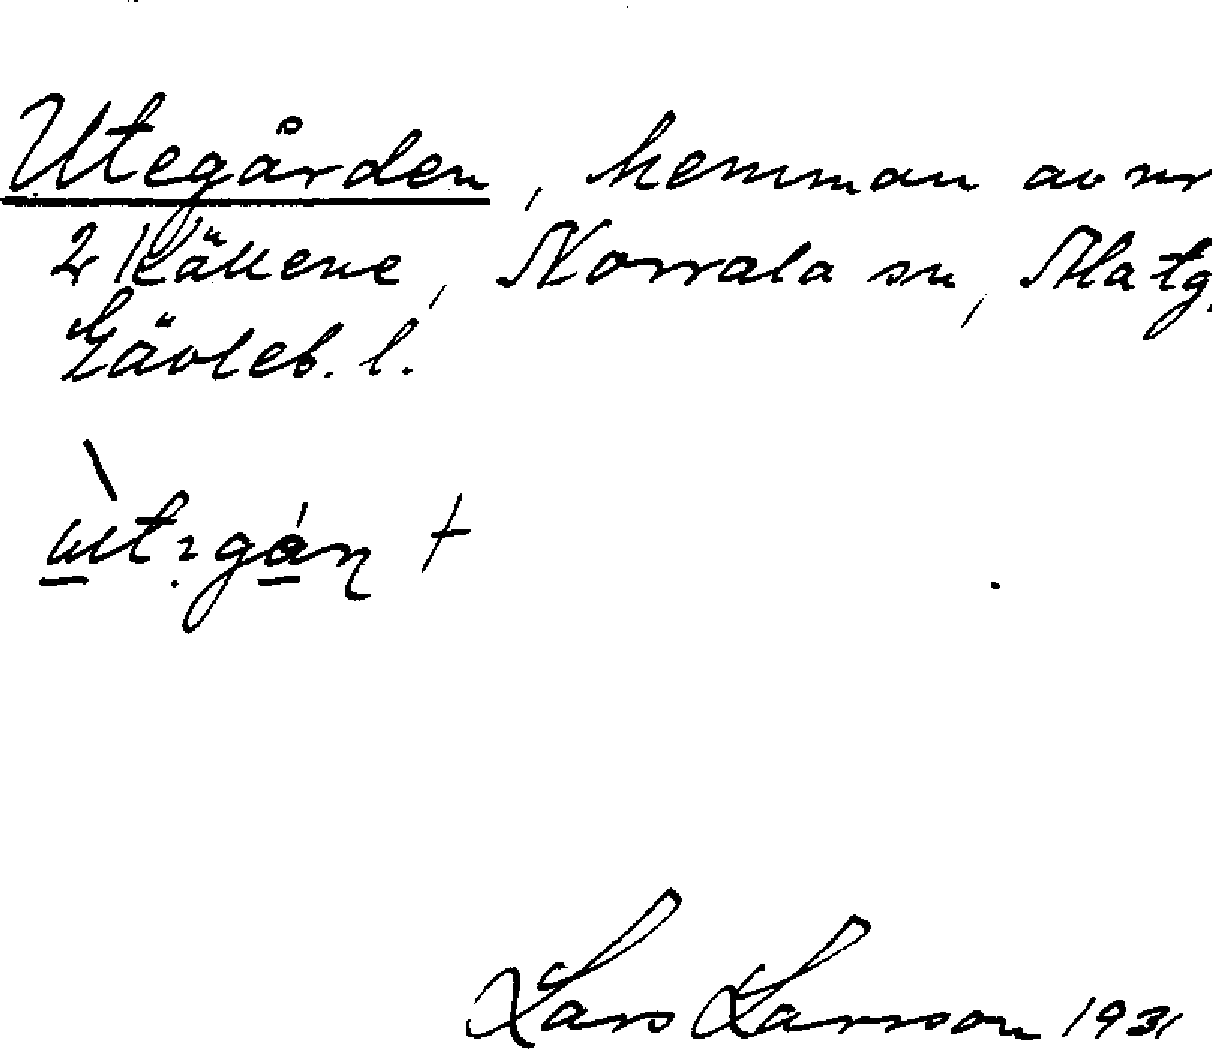 Utegården, hemman av nr
2 Kättene, Norrala sn, Ala tg,
Gävleb. l.
Lars Larsson 1931